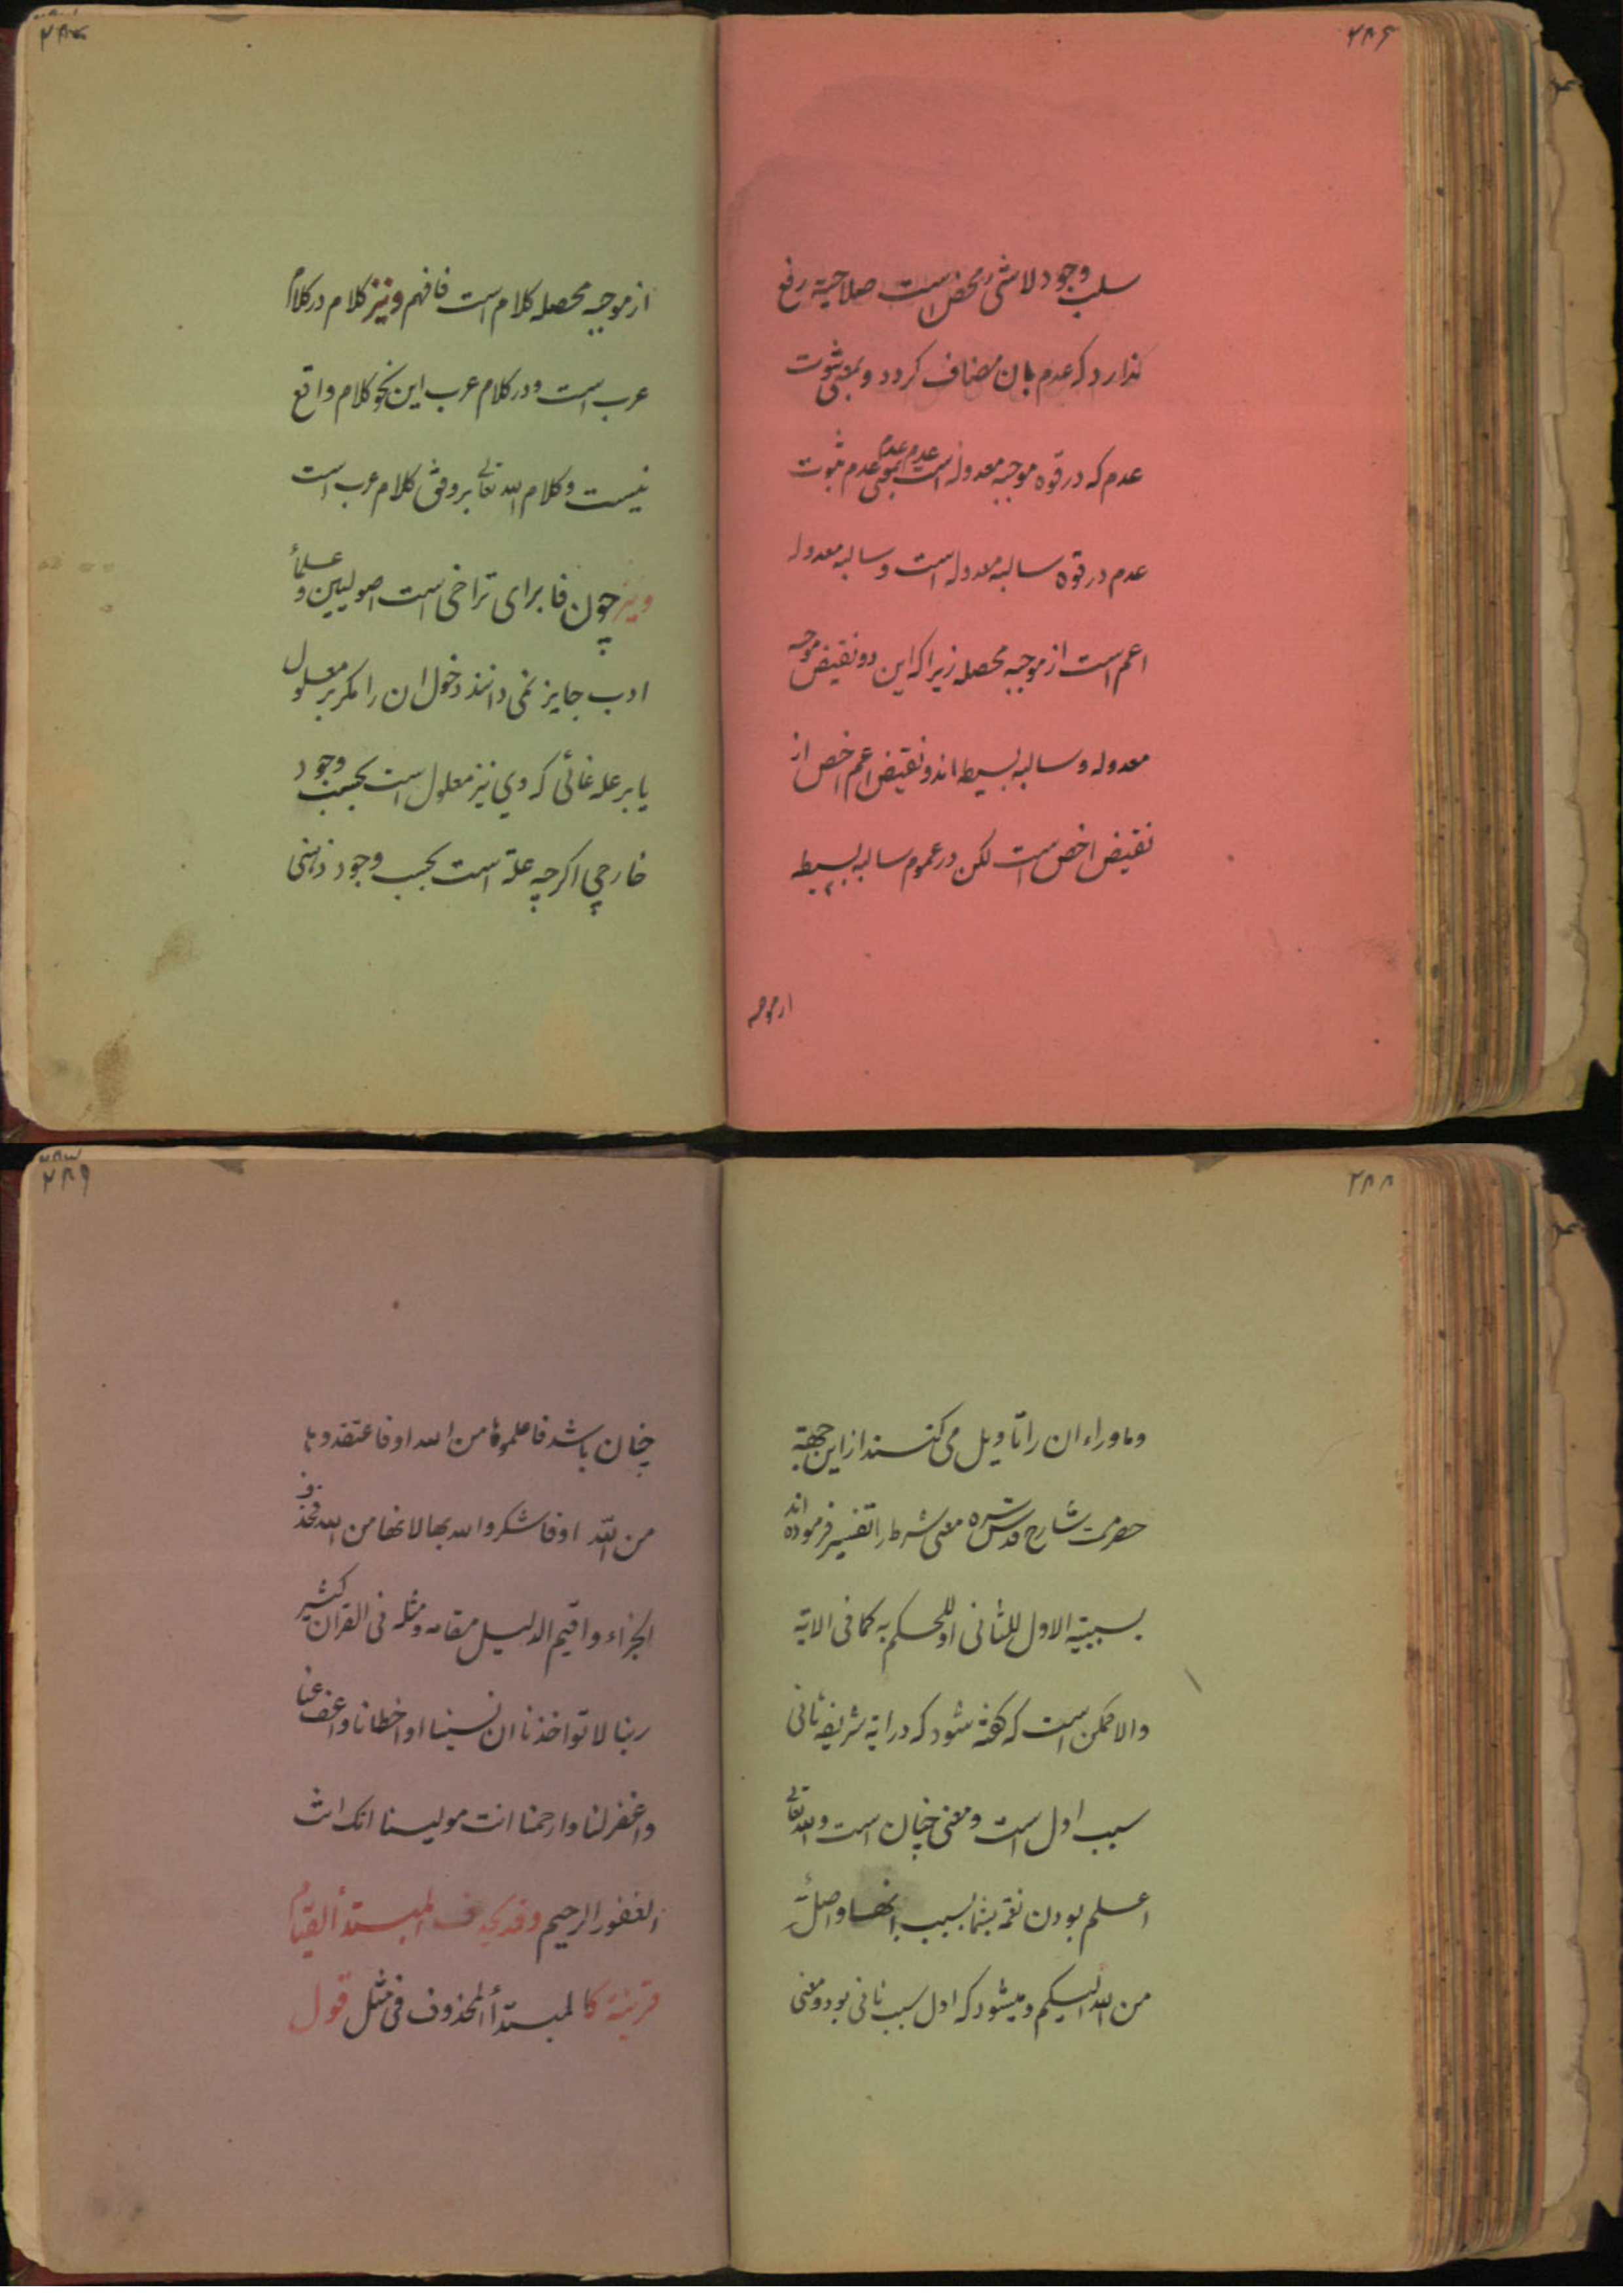 ۲۸۶
سلب وجود لاشئ محض است صلاحیة رفع
ندارد که عدم بان مضاف کردد و بمعنی ثبوت
عدم که در قوه موجبه معدوله است بمعنی عدم ثبوت
عدم در قوه سالبه معدوله است و سالبه معدوله
اعم است از موجبه محصله زیرا که این دو نقیض موجبه
معدوله و سالبه بسیطه اند و نقیض اعم اخص از
نقیض اخص است لکن در عموم سالبه بسیطه
ازموجبه
۲۸۷
ازموجبه محصله کلام است فافهم ونیز کلام درکلام
عرب است ودر کلام عرب این نحو کلام واقع
نیست وکلام الله تعالی بر وفق کلام عرب است
ونیز چون فا برای تراخی است اصولیین و علماء
ادب جایز نمی دانند دخول ان را مکر بر معلول
یا بر علة غائی که وی نیز معلول است بحسب وجود
خارجی اکرچه علة است بحسب وجود ذهنی
۲۸۸
وماوراء ان را تاویل می کنند از این جهة
حضرت شارح قدس سره معنی شرط را تفسیر فرموده اند
بسببیة الاول للثانی او للحکم به کما فی الایة
والا ممکن است که کفته شود که در ایة شریفه ثانی
سبب اول است ومعنی چنان است والله تعالی
اعلم بودن نقمة بشما بسبب انها واصلة
من الله الیکم ومیشود که اول سبب ثانی بود ومعنی
۲۸۹
چنان باشد فاعلموها من الله او فاعتقدوها
من الله او فاشکروا الله بها لانها من الله فحذف
الجزاء واقیم الدلیل مقامه ومثله فی القران کثیر
ربنا لا تواخذنا ان نسینا او اخطانا واعف عنا
واغفر لنا وارحمنا انت مولینا انک انت
الغفور الرحیم وقد یحذف المبتدأ لقیام
قرینة کالمبتدأ المحذوف فی مثل قول